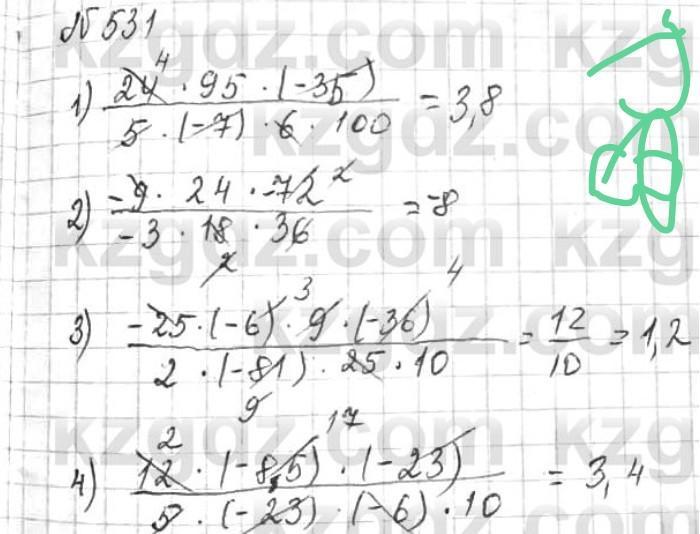 №531
1) 24 · 95 · (-35) / 5 · (-7) · 6 · 100 = 3,8
4
2) -9 · 24 · -72 / -3 · 18 · 36 = -8
2
2
3) -25 · (-6) · 9 · (-36) / 2 · (-81) · 25 · 10 = 12/10 = 1,2
3 4
9
4) 12 · (-85) · (-23) / 5 · (-23) · (-6) · 10 = 3,4
2 17
kzgdz.com